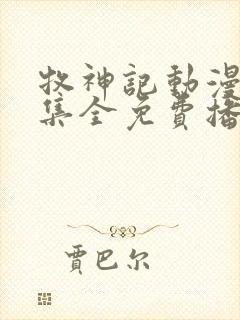 牧神記動漫
集全免費播
賈巴尔